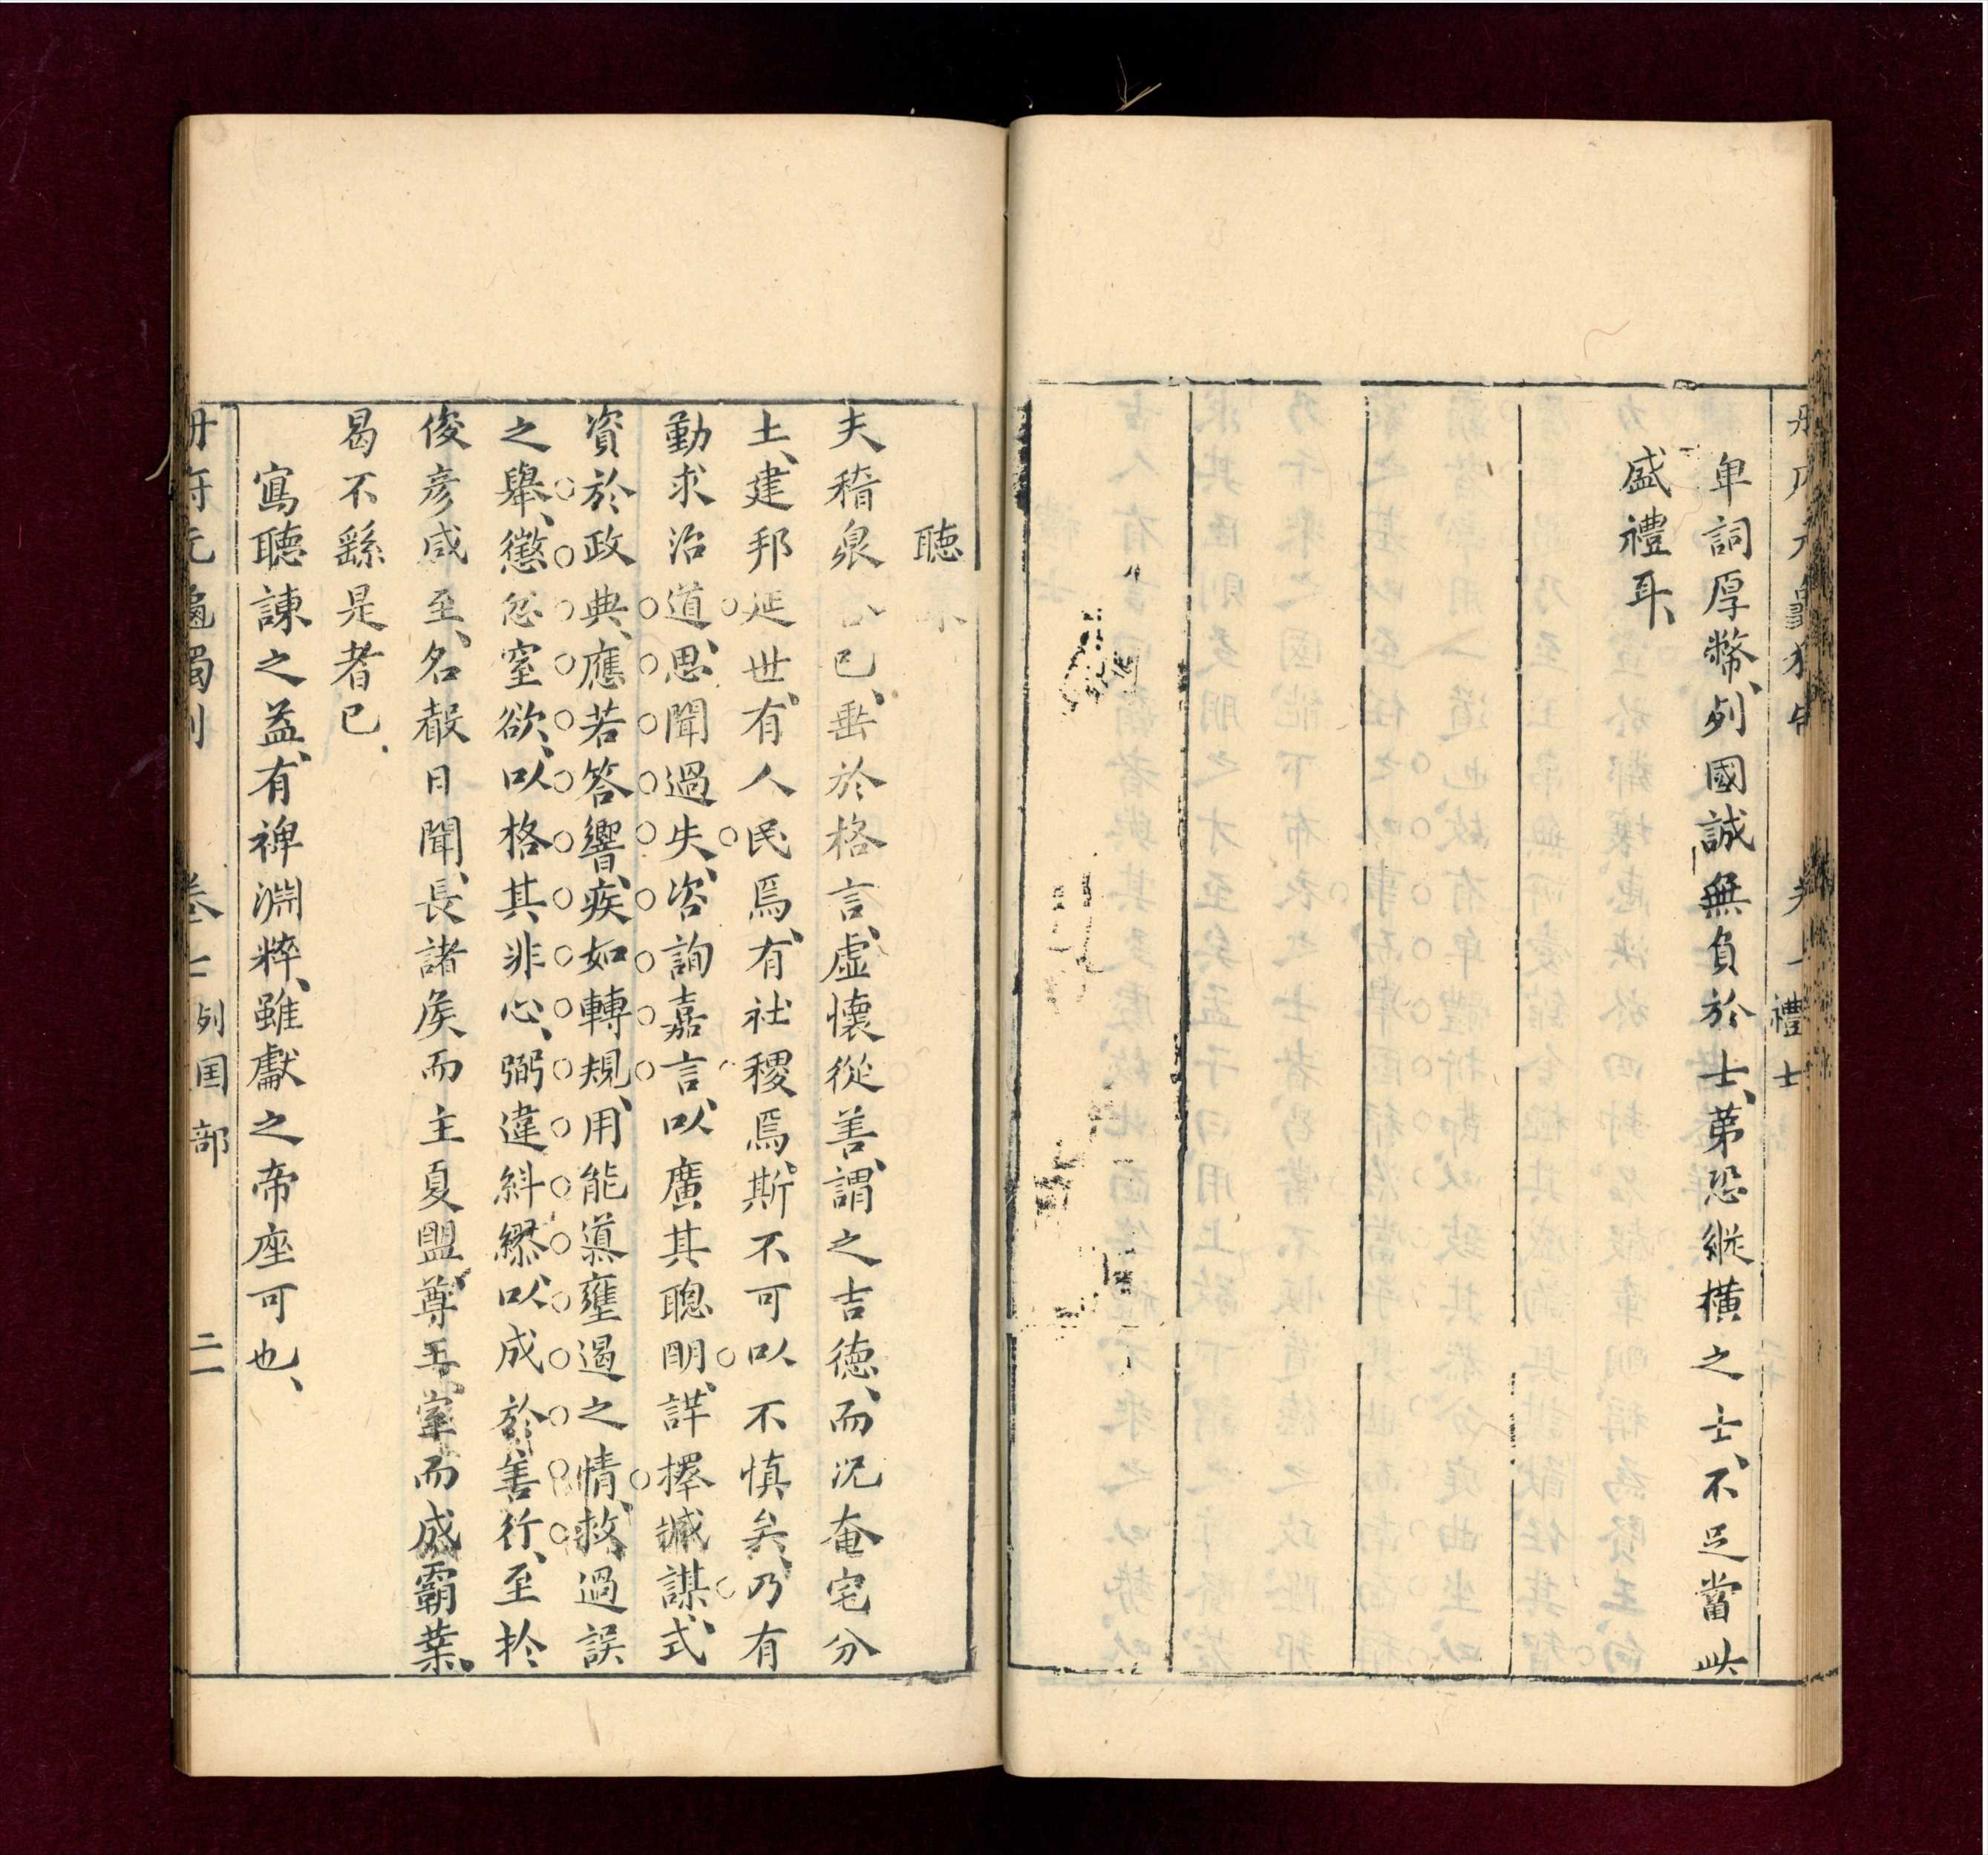 禮士
卑詞厚幣、列國誠無負於士、第恐縱橫之士、不足當此
盛禮耳、
聽
夫稽泉 已、垂於格言、虛懷從善、謂之吉德、而況奄宅分
土、建邦延世、有人民焉、有社稷焉、斯不可以不慎矣、乃有
勤求治道、思聞過失、咨詢嘉言、以廣其聰明、詳擇讜謀、式
資於政典、應若答響、疾如轉規、用能道壅遏之情、救過誤
之舉、懲忿窒欲、以格其非心、弼違糾繆、以成於善行、至於
俊彥咸至、名聲日聞、長諸侯而主夏盟、尊王室而成霸業、
曷不繇是者已、
寫聽諫之益、有裨淵粹、雖獻之帝座可也、
冊府元龜獨制 卷七列国部 二一